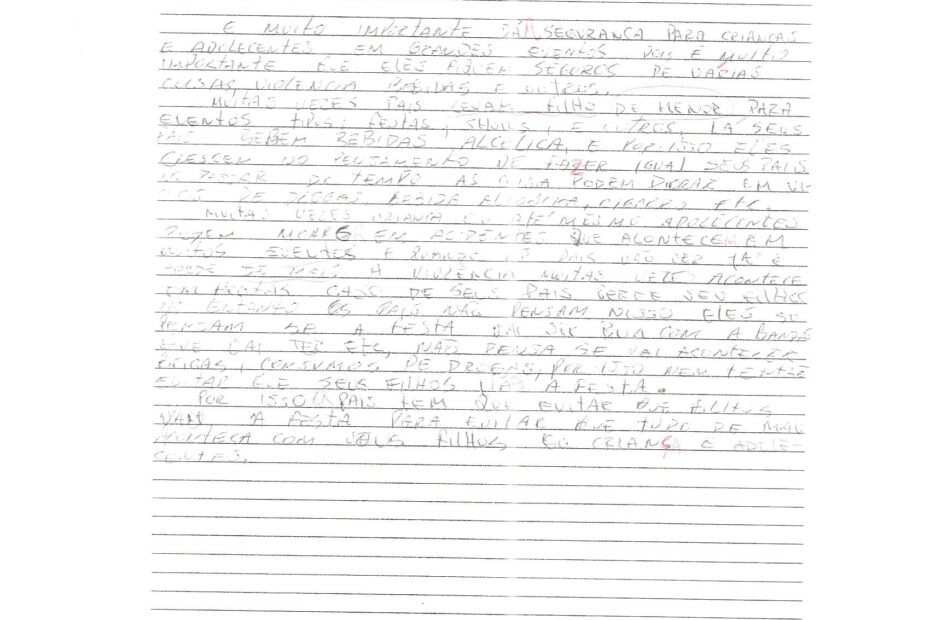 E MUITO IMPORTANTE DÁ A SEGURANÇA PARA CRIANÇAS
E ADOLECENTES EM GRANDES EVENTOS POIS E MUITO
IMPORTANTE QUE ELES FIQUEM SEGUROS DE VÁRIAS
COISAS, VIOLENCIA BEBIDAS E OUTROS.
MUITAS VEZES PAIS LEVAM FILHO DE MENOR PARA
EVENTOS TIPOS; FESTAS, SHOWS, E OUTROS, LA SEUS
PAIS BEBEM BEBIDAS ALCOLICA, E POR ISSO ELES
CRESCEM NO PENSAMENTO DE FAZER IGUAL SEUS PAIS
DE TEMPO AS COISA PODEM PIORAR EM
DE DROGAS, BEBIDA ALCOOLICA, CIGARRO ETC.
MUITAS VEZES CRIANÇA OU ATÉ MESMO ADOLECENTES
PODEM MORREREM ACIDENTES QUE ACONTECEM EM
MUITOS EVENTOS E QUANDO OS PAIS VÃO VER JÁ É
TARDE DE MAIS A VIOLÊNCIA MUITAS VEZES ACONTECE
FESTAS CASO DE SEUS PAIS SEUS FILHOS
NO ENTANTO OS PAIS NÃO PENSAM NISSO ELES SO
PENSAM SE A FESTA VAI SER BOA COM A BANDA
QUE VAI TER ETC, NÃO PENSA SE VAI ACONTECER
BRIGAS, CONSUMOS DE DROGAS, POR ISSO NEM TENTE
EVITAR QUE SEUS FILHOS VÃO A FESTA.
POR ISSO A PAIS TEM QUE EVITAR QUE FILHOS
VAM A FESTA PARA EVITAR QUE TUDO DE MAU
ACONTEÇA COM SEUS FILHOS OU CRIANÇA E ADOLE-
CENTES.